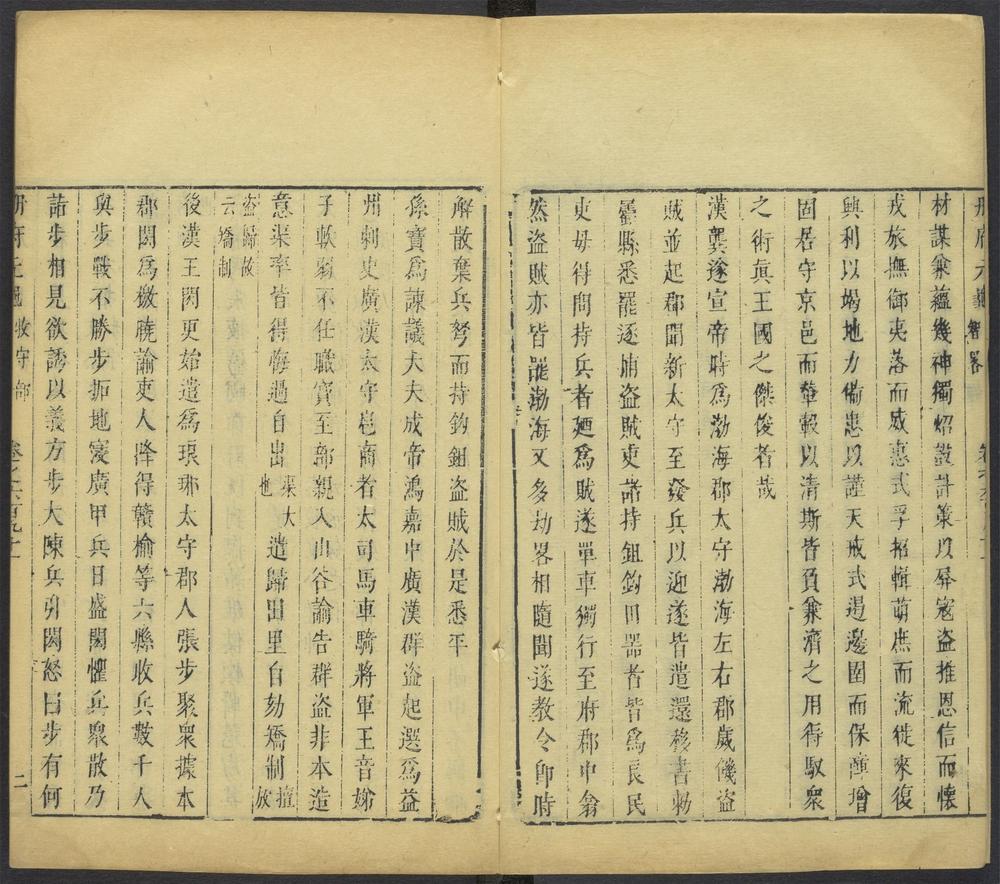 冊府元龜 智畧
材謀兼蘊幾神獨炤設計策以屏寇盜推恩信而懷
戎旅撫御夷落而威惠式孚招輯萌庶而流徙來復
興利以竭地力備患以謹天戒式遏邊圉而保障增
固居守京邑而輦轂以清斯皆負兼濟之用得馭衆
之術真王國之傑俊者哉
漢龔遂宣帝時爲渤海郡太守渤海左右郡歲饑盜
賊並起郡聞新太守至發兵以迎遂皆遣還移書勑
屬縣悉罷逐捕盜賊吏諸持鉏鈎田器者皆爲良民
吏毋得問持兵者廼爲賊遂單車獨行至府郡中翕
然盜賊亦皆罷渤海又多劫畧相隨聞遂教令即時
解散棄兵弩而持鈎鉏盜賊於是悉平
孫寶爲諫議大夫成帝鴻嘉中廣漢群盜起選爲益
州刺史廣漢太守扈商者太司馬車騎將軍王音姊
子軟弱不任職寶至部親入山谷諭告群盜非本造
意渠率皆得悔過自出渠大也遣歸田里自劾矯制擅放
盜歸故云矯制
後漢王閎更始遣爲琅琊太守郡人張步聚衆據本
郡閎爲檄曉諭吏人降得贛榆等六縣收兵數千人
與步戰不勝步拓地寖廣甲兵日盛閎懼兵衆散乃
詣步相見欲誘以義方步大陳兵引閎怒曰步有何
冊府元龜 牧守部 卷之六百九十一 二